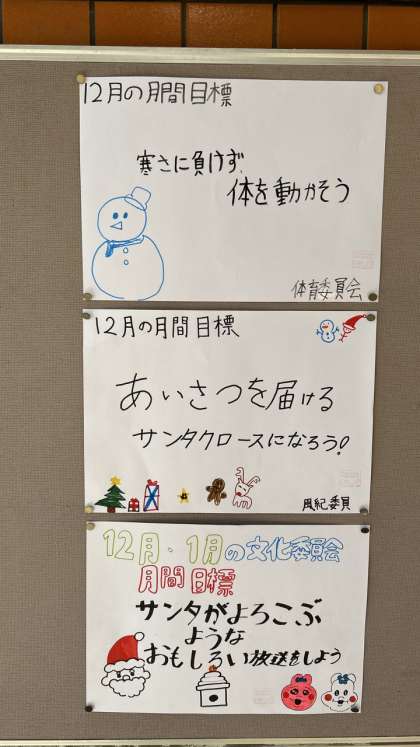 12月の月間目標
寒さに負けず、
体を動かそう
体育委員会
12月の月間目標
あいさつを届ける
サンタクロースになろう!
風紀委員
12月・1月の文化委員会
月間目標
サンタがよろこぶ
ような
おもしろい放送をしよう